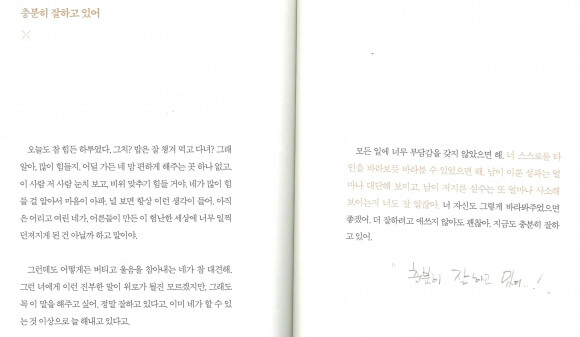 충분히 잘하고 있어
오늘도 참 힘든 하루였다, 그치? 밥은 잘 챙겨 먹고 다녀? 그래
알아, 많이 힘들지. 어딜 가든 네 맘 편하게 해주는 곳 하나 없고,
이 사람 저 사람 눈치 보고, 비위 맞추기 힘들 거야. 네가 많이 힘
들 걸 알아서 마음이 아파. 널 보면 항상 이런 생각이 들어. 아직
은 어리고 여린 네가, 어른들이 만든 이 험난한 세상에 너무 일찍
던져지게 된 건 아닐까 하고 말이야.
그런데도 어떻게든 버티고 울음을 참아내는 네가 참 대견해.
그런 너에게 이런 진부한 말이 위로가 될진 모르겠지만, 그래도
꼭 이 말을 해주고 싶어. 정말 잘하고 있다고, 이미 네가 할 수 있
는 것 이상으로 늘 해내고 있다고.
모든 일에 너무 부담감을 갖지 않았으면 해. 너 스스로를 타
인을 바라보듯 바라볼 수 있었으면 해. 남이 이룬 성과는 얼
마나 대단해 보이고, 남이 저지른 실수는 또 얼마나 사소해
보이는지 너도 잘 알잖아. 너 자신도 그렇게 바라봐주었으면
좋겠어. 더 잘하려고 애쓰지 않아도 괜찮아. 지금도 충분히 잘하
고 있어.
"충분히 잘 하고 있어..!"